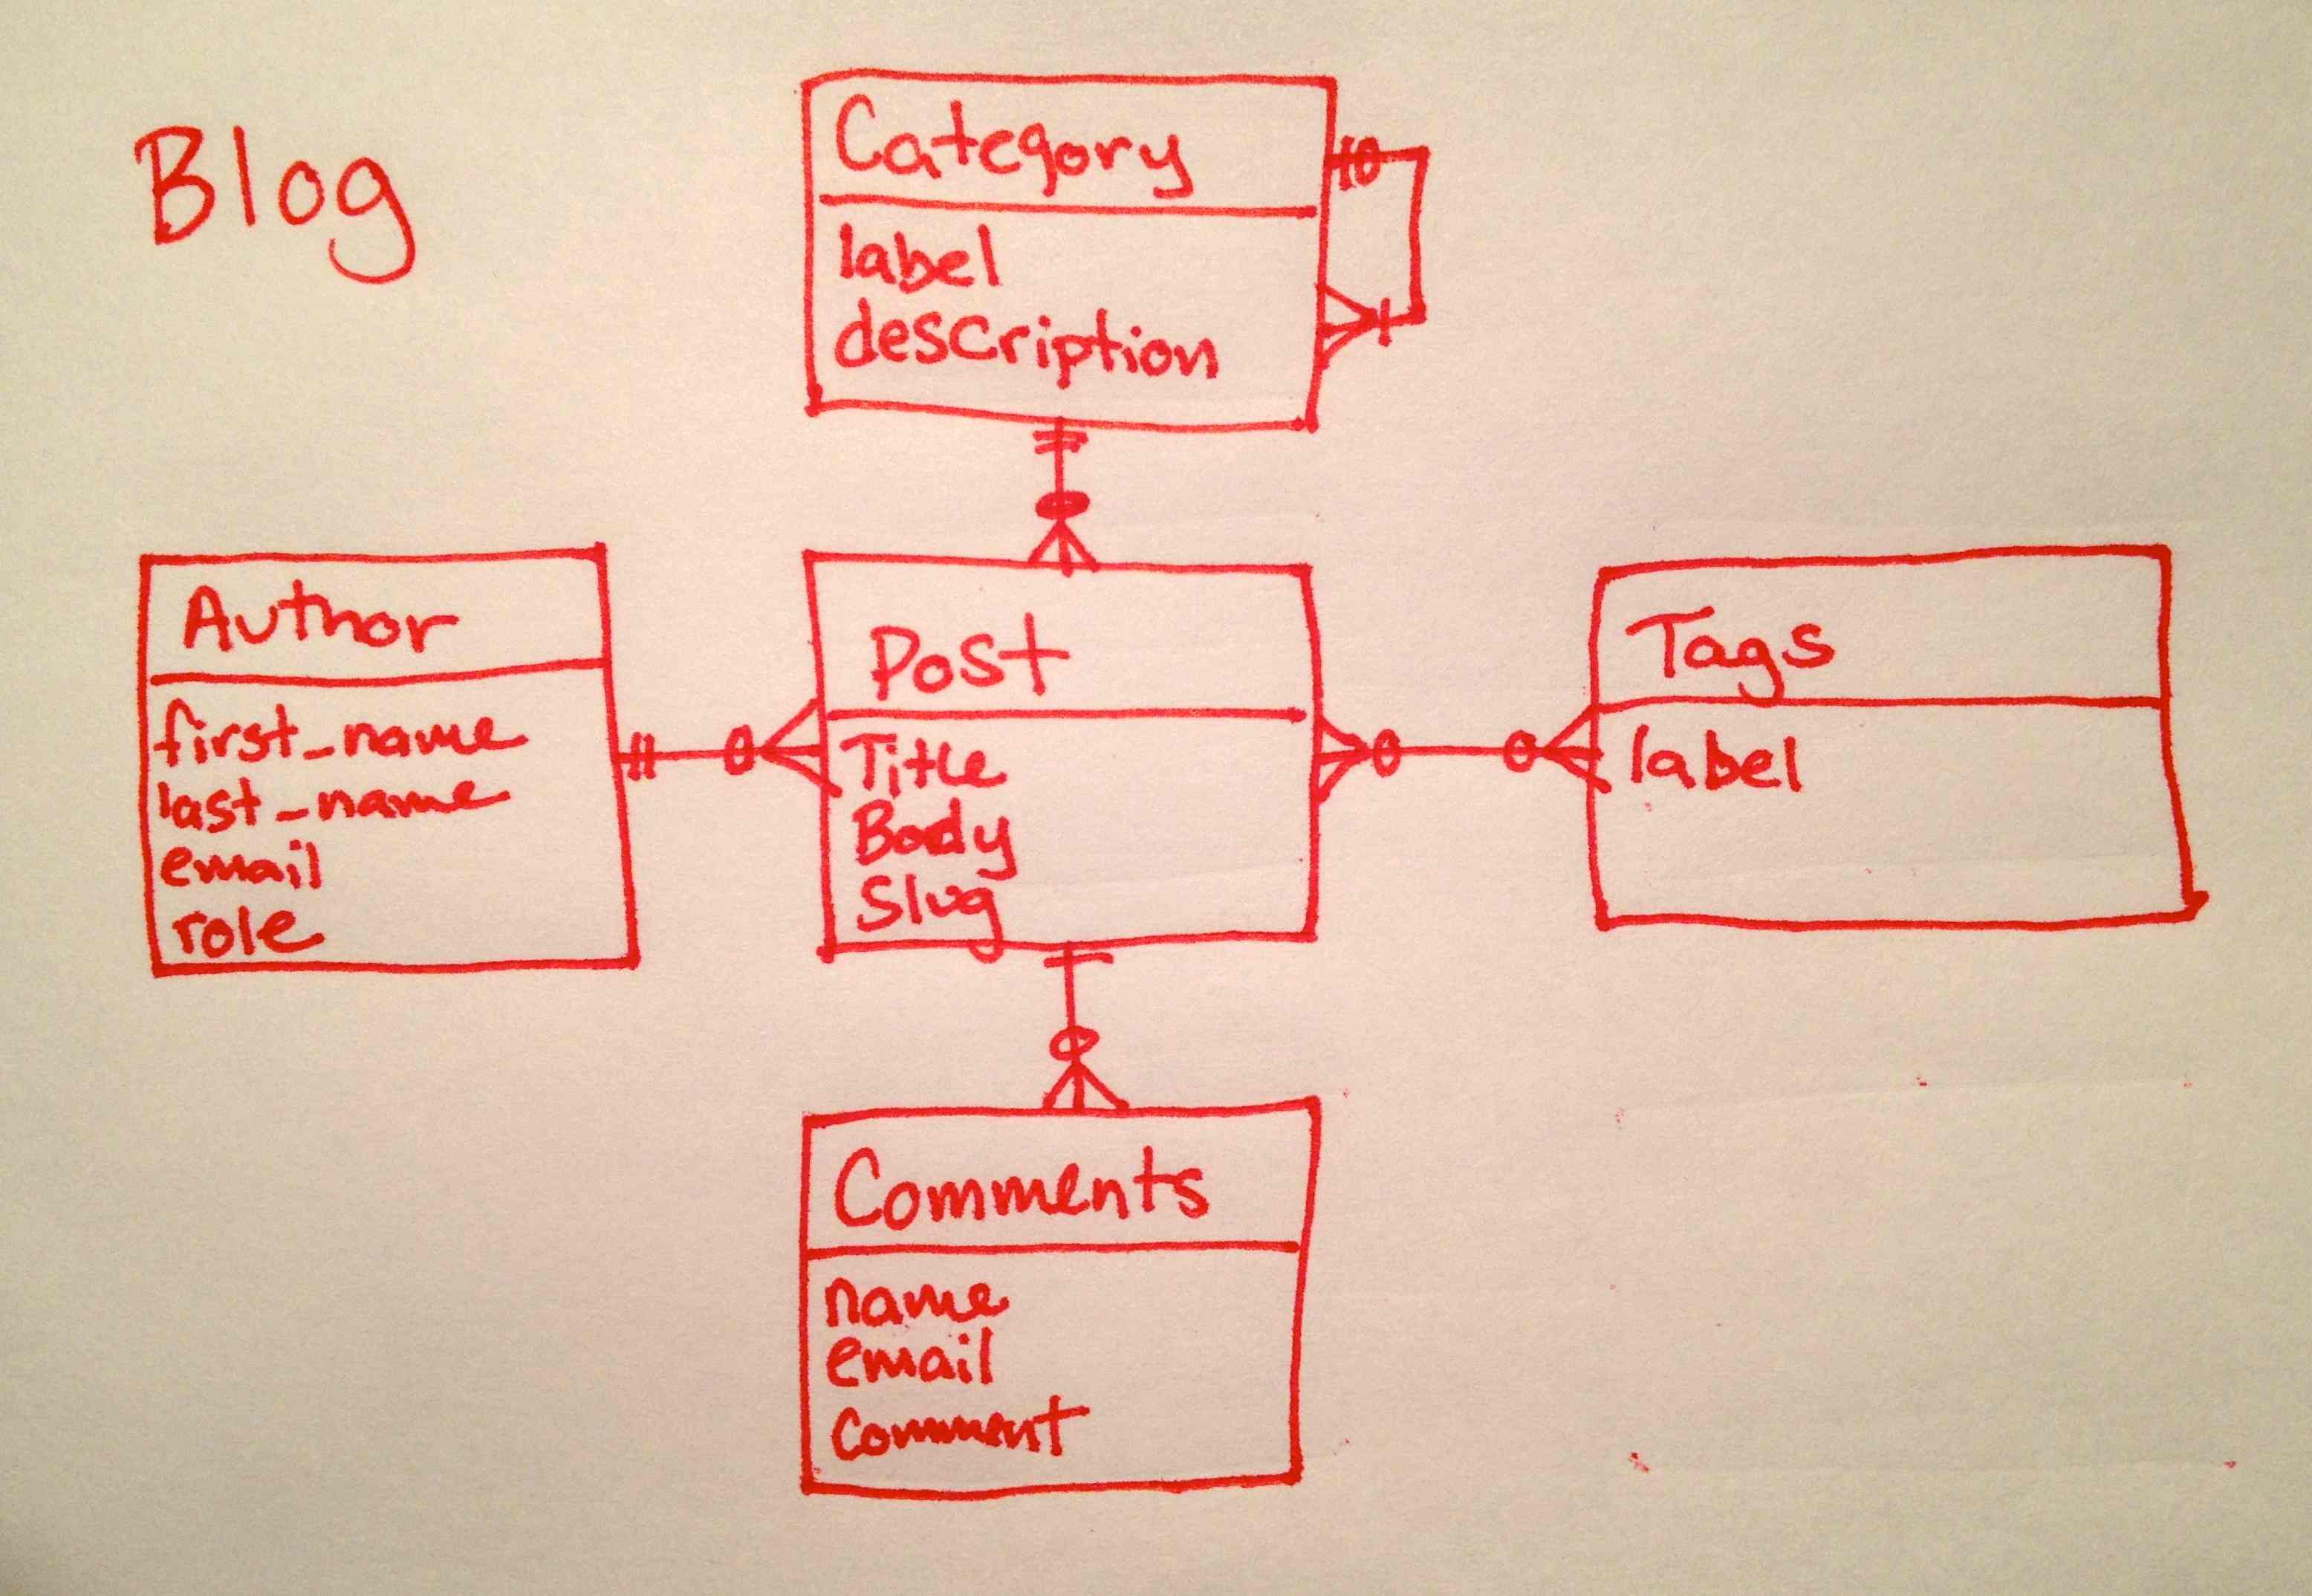 Blog
Category
label
description
Author
first_name
last_name
email
role
Post
Title
Body
Slug
Tags
label
Comments
name
email
Comment